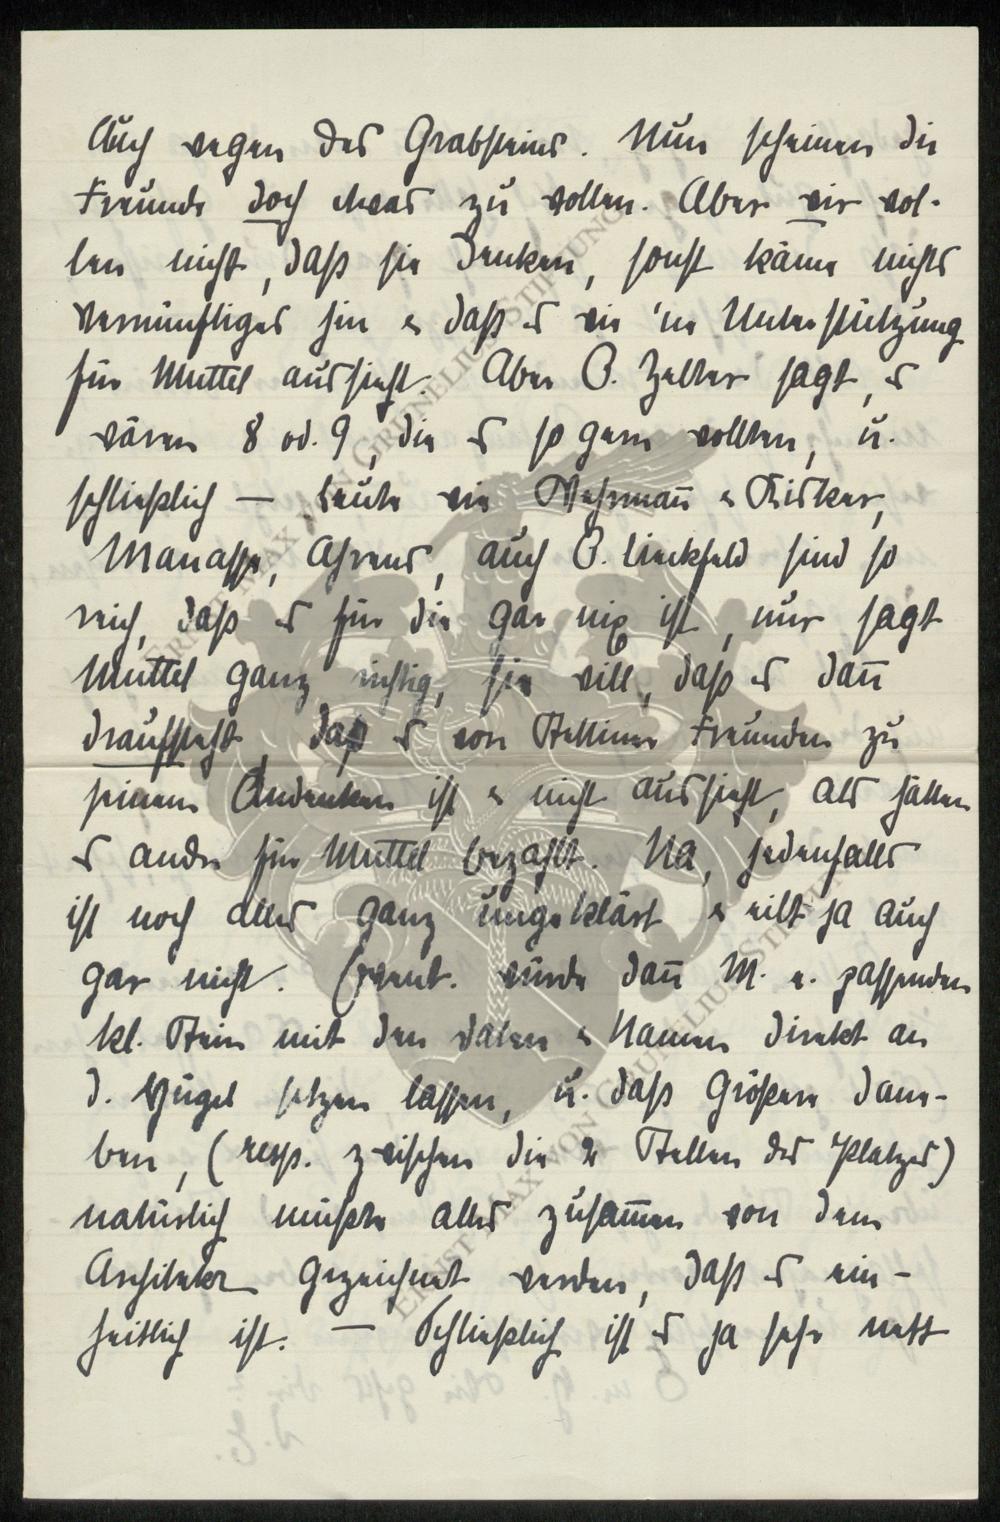 Auch wegen des Grabsteins. Nun scheinen die
Freunde doch etwas zu wollen. Aber wir wol-
len nicht, daß sie denken, sonst käme nichts
vernünftiges hin & daß es wie 'ne Unterstützung
für Muttel aussieht. Aber O. Zelter sagt, es
wären 8 od. 9, die es so gern wollten, u.
schließlich — Leute wie Wehrmann & Kisker,
Manasse, Ahrens, auch O. Lieckfeld sind so
reich, daß es für die gar nix ist, nur sagt
Muttel ganz richtig, sie will, daß es dann
draufsteht, daß es von Stettiner Freunden zu
seinem Andenken ist & nicht aussieht, als hätten
es andre für Muttel bezahlt. Na, jedenfalls
ist noch alles ganz ungeklärt & eilt ja auch
gar nicht. Event. würde dann M. e. passenden
kl. Stein mit den Daten & Namen direkt an
d. Hügel setzen lassen, u. daß Größere dane-
ben, (resp. zwischen die 2 Stellen des Platzes)
natürlich müßte alles zusammen von dem
Architekt gezeichnet werden, daß es ein-
heitlich ist. — Schließlich ist es ja sehr nett
ERNST MAX VON GRUNELIUS-STIFTUNG
ERNST MAX VON GRUNELIUS-STIFTUNG